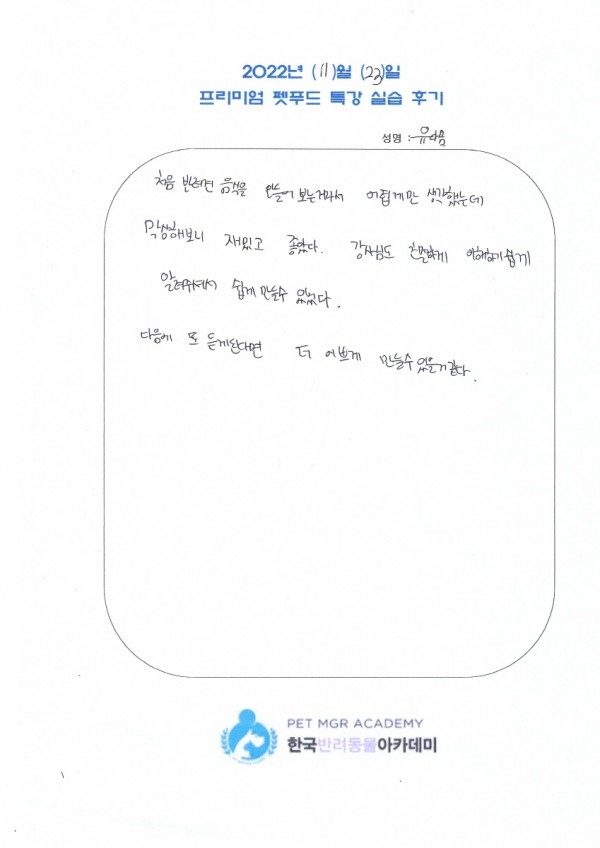 2022년 (11)월 (23)일
프리미엄 펫푸드 특강 실습 후기
성명 :
처음 반려견 음식을 만들어 보는거라서 어렵게만 생각했는데
막상해보니 재밌고 좋았다. 강사님도 친절하게 이해하기쉽게
알려주셔서 쉽게 만들수 있었다.
다음에 또 듣게된다면 더 이쁘게 만들수있을거같다.
PET MGR ACADEMY
한국반려동물아카데미